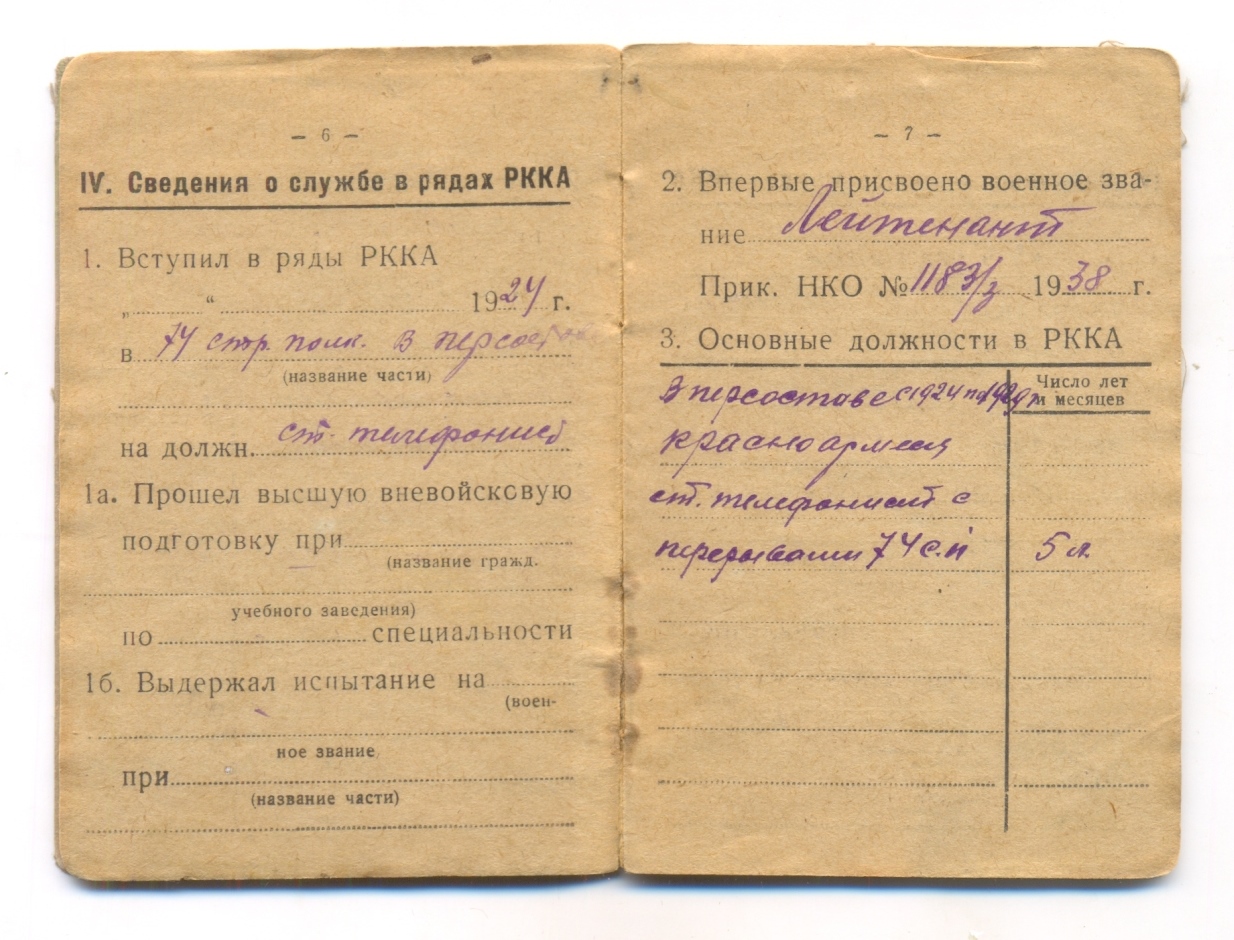 — 6 —
IV. Сведения о службе в рядах РККА
1. Вступил в ряды РККА
„ “ 1924 г.
в 74 стр. полк. В персостав
(название части)
на должн. ст. телефонист
1а. Прошел высшую вневойсковую
подготовку при
(название гражд.
учебного заведения)
по специальности
1б. Выдержал испытание на
(воен-
ное звание
при
(название части)
— 7 —
2. Впервые присвоено военное зва-
ние Лейтенант
Прик. НКО № 1183/з 1938 г.
3. Основные должности в РККА
Число лет
и месяцев
В персоставе с 1924 по 1929 г
красноармеец
ст. телефонист с
перерывами 74 с.п 5 л.